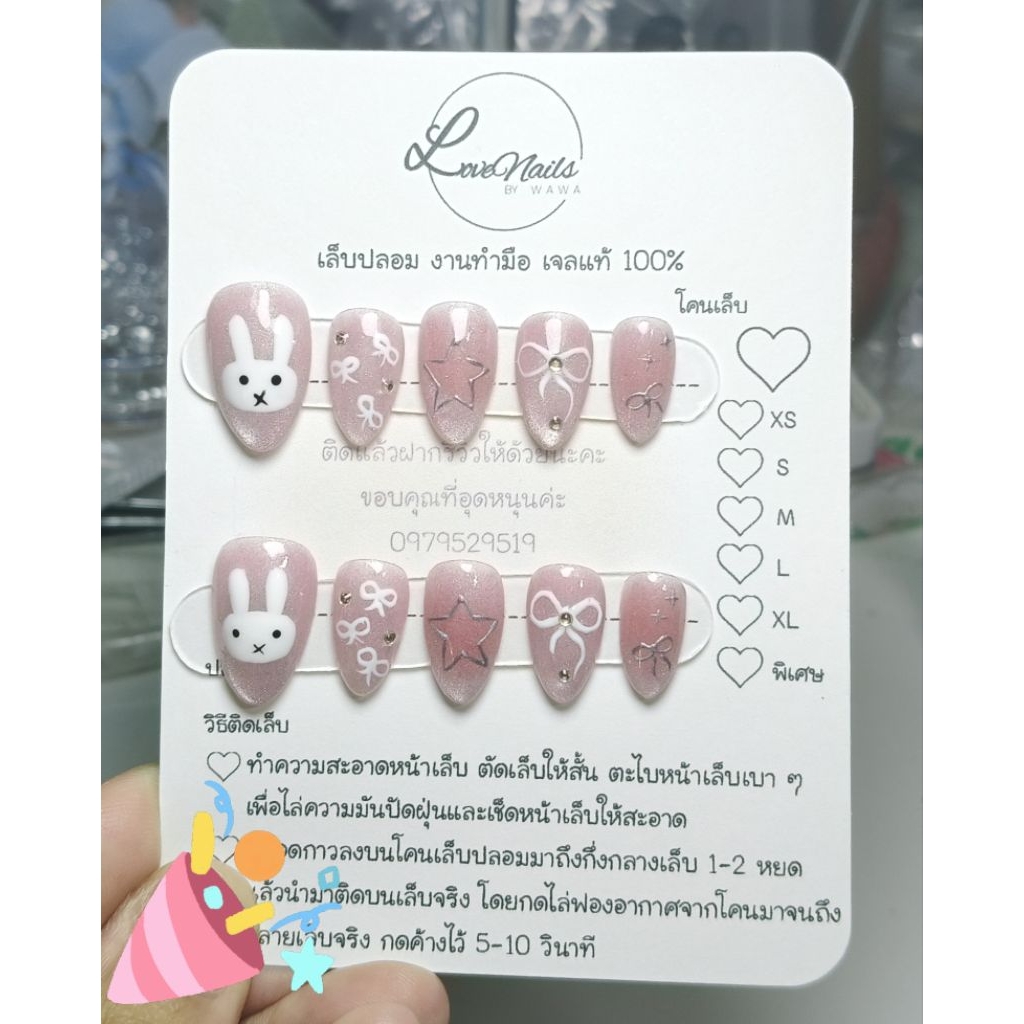 LoveNails
BY WAWA
เล็บปลอม งานทำมือ เจลแท้ 100%
โคนเล็บ
XS
S
M
L
XL
พิเศษ
ติดแล้วฝากรีวิวให้ด้วยนะคะ
ขอบคุณที่อุดหนุนค่ะ
0979529519
วิธีติดเล็บ
ทำความสะอาดหน้าเล็บ ตัดเล็บให้สั้น ตะไบหน้าเล็บเบา ๆ
เพื่อไล่ความมันปัดฝุ่นและเช็ดหน้าเล็บให้สะอาด
กาวลงบนโคนเล็บปลอมมาถึงกึ่งกลางเล็บ 1-2 หยด
แล้วนำมาติดบนเล็บจริง โดยกดไล่ฟองอากาศจากโคนมาจนถึง
ปลายเล็บจริง กดค้างไว้ 5-10 วินาที